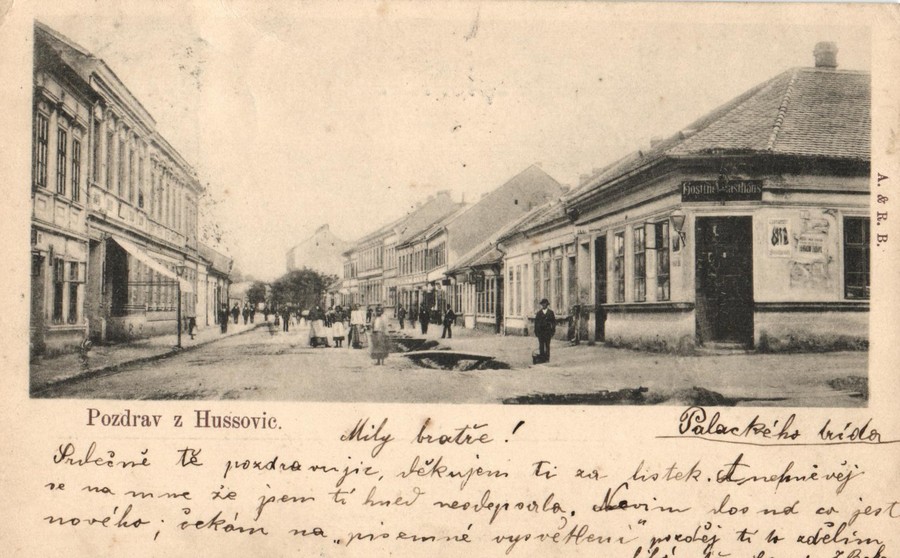 Hostinec Gasthaus
A. & R. B.
Pozdrav z Hussovic.
Palackého třída
Milý bratře!
Srdečně tě pozdravujíc, děkujem ti za lístek. A nehněvěj
se na mne že jsem tí hned neodepsala. Nevim dosud co jest
nového; čekám na „písemné vysvětlení" pozděj ti to zdělím